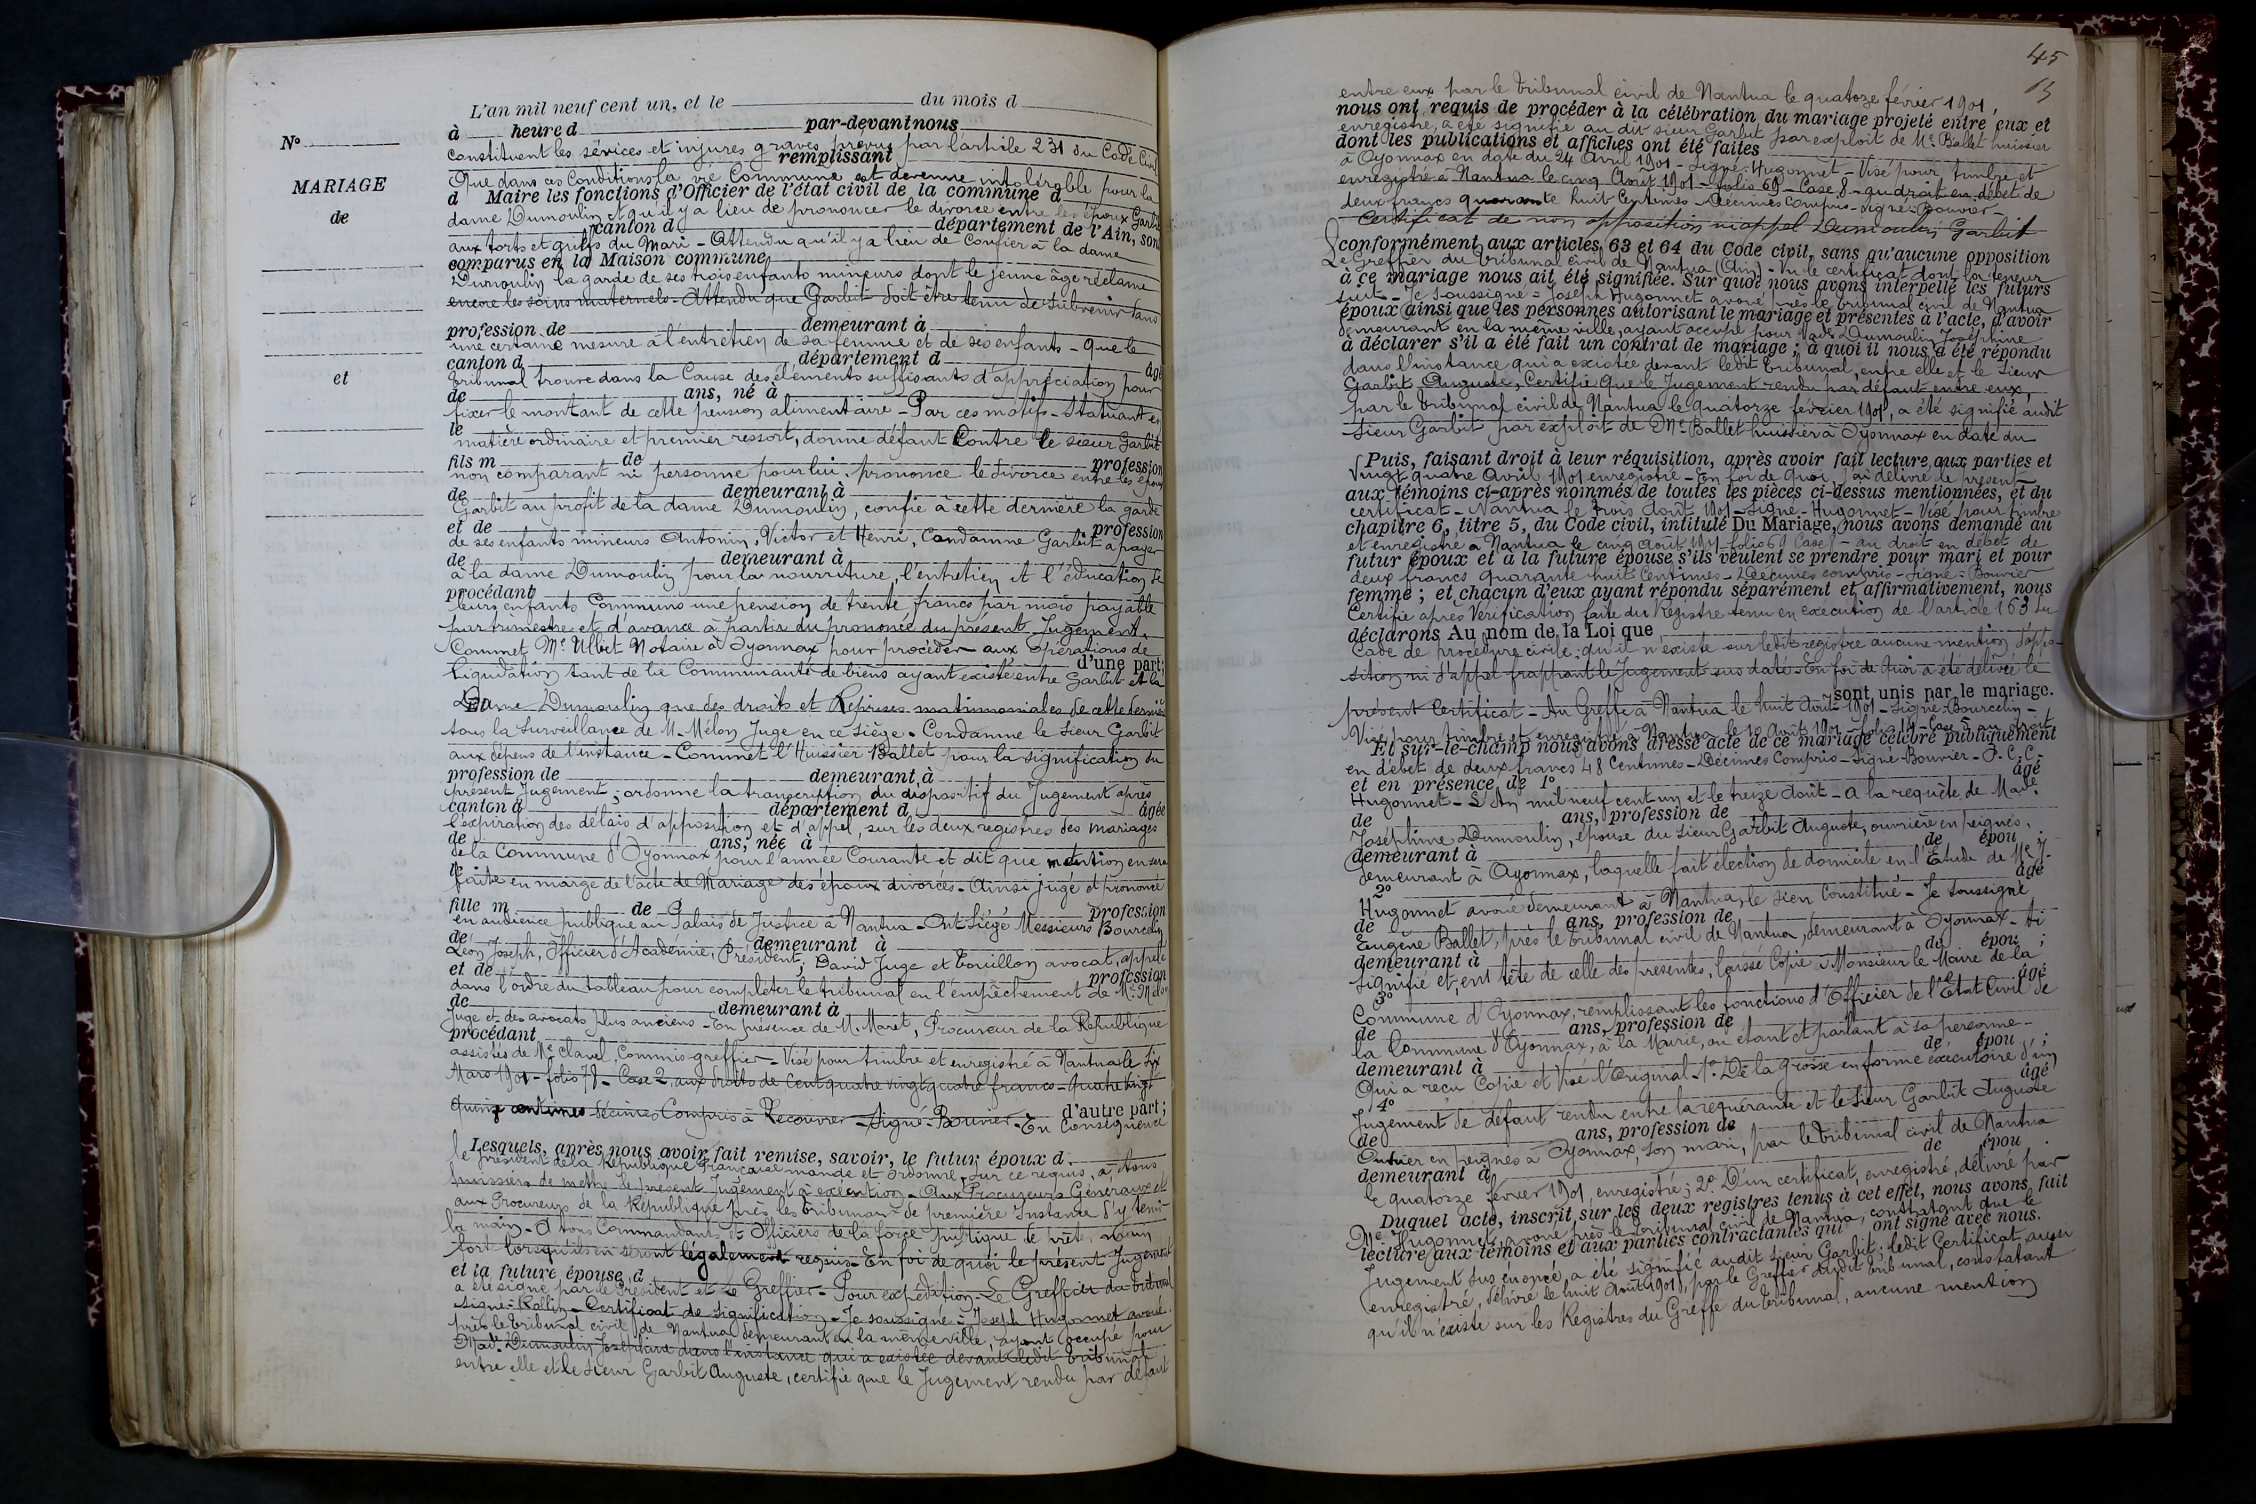 L'an mil neuf cent un, et le du mois d
à heure d par-devant nous
Nº
constituent les sévices et injures graves prévus par l'article 231 du Code Civil
remplissant
Que dans ces Conditions la vie Commune est devenue intolérable pour la
MARIAGE
d Maire les fonctions d'Officier de l'état civil de la commune d
dame Dumoulin et qu'il y a lieu de prononcer le divorce entre les époux Garbit
de
canton d département de l'Ain, sont
aux torts et griefs du Mari - Attendu qu'il y a lieu de Confier à la dame
comparus en la Maison commune
Dumoulin la garde de ses trois enfants mineurs dont le jeune âge réclame
encore les soins maternels - Attendu que Garbit doit être tenu de subvenir dans
profession de demeurant à
une certaine mesure à l'entretien de sa femme et de ses enfants - Que le
canton d département d âgé
et
Tribunal trouve dans la Cause des éléments suffisants d'appréciation pour
de ans, né à
fixer le montant de cette pension alimentaire - Par ces motifs - Statuant en
le
matière ordinaire et premier ressort, donne défaut Contre le sieur Garbit
fils m de profession
non comparant ni personne pour lui, prononce le divorce entre les époux
de demeurant à
Garbit au profit de la dame Dumoulin, confie à cette dernière la garde
et de profession
de ses enfants mineurs Antonin, Victor et Henri, Condamne Garbit à payer
de demeurant à
à la dame Dumoulin pour la nourriture, l'entretien et l'éducation de
procédant
leurs enfants Communs une pension de trente francs par mois payable
par trimestre et d'avance à partir du prononcé du présent Jugement,
Commet Me Ulbit Notaire à Oyonnax pour procéder aux opérations de
d'une part;
liquidation tant de la Communauté de biens ayant existé entre Garbit et la
Dame Dumoulin que des droits et Reprises matrimoniales de cette dernière
sous la surveillance de M. Mélon Juge en ce siège. Condamne le sieur Garbit
aux dépens de l'instance - Commet l'Huissier Ballet pour la signification du
profession de demeurant à
présent Jugement; ordonne la transcription du dispositif du Jugement après
canton d département d âgée
l'expiration des délais d'opposition et d'appel, sur les deux registres des mariages
de ans, née à
de la Commune d'Oyonnax pour l'année Courante et dit que mention en sera
le
faite en marge de l'acte de Mariage des époux divorcés. Ainsi jugé et prononcé
fille m de profession
en audience publique au Palais de Justice à Nantua - Ont siégé Messieurs Bourcelin
de demeurant à
Léon Joseph, Officier d'Académie, Président; David Juge et Bouillon avocat, appelé
et de profession
dans l'ordre du tableau pour compléter le tribunal en l'empêchement de Mr Mélon
de demeurant à
Juge et des avocats plus anciens - En présence de M. Maret, Procureur de la République
procédant
assistés de Me Clavel, Commis greffier - Visé pour timbre et enregistré à Nantua le six
Mars 1901 - folio 78 - Case 2, aux droits de Cent quatre vingt quatre francs - quatre vingt
quinze centimes décimes Compris à Recouvrer - Signé - Bouvier. En Conséquence
d'autre part;
Lesquels, après nous avoir fait remise, savoir, le futur époux d
le président de la République Française mande et Ordonne, sur ce requis, à tous
huissiers de mettre le présent Jugement à exécution - Aux Procureurs Généraux et
aux Procureurs de la République près les tribunaux de première Instance d'y tenir
la main - A tous Commandants et Officiers de la force publique de prêter main
forte lorsqu'ils en seront légalement requis - En foi de quoi le présent Jugement
et la future épouse d
a été signé par le Président et le Greffier - Pour expédition - Le Greffier du tribunal
signé: Rollin - Certificat de signification - Je soussigné: Joseph Hugonnet avoué
près le tribunal civil de Nantua demeurant en la même ville, ayant occupé pour
Made Dumoulin Joséphine dans l'instance qui a existée devant ledit tribunal
entre elle et le sieur Garbit Auguste, certifie que le Jugement rendu par défaut
45
entre eux par le tribunal civil de Nantua le quatorze février 1901,
nous ont requis de procéder à la célébration du mariage projeté entre eux et
enregistré, a été signifié au dit sieur Garbit par exploit de Me Ballet huissier
dont les publications et affiches ont été faites
à Oyonnax en date du 24 Avril 1901 - Signé: Hugonnet - Visé pour timbre et
enregistré à Nantua le cinq Août 1901 - folio 69 - Case 8 - au droit en débet de
deux francs quarante huit Centimes - Décimes Compris - signé: Bouvier -
Certificat de non opposition ni appel Dumoulin Garbit
conformément aux articles 63 et 64 du Code civil, sans qu'aucune opposition
Le Greffier du tribunal civil de Nantua (Ain) - Vu le certificat dont la teneur
à ce mariage nous ait été signifiée. Sur quoi nous avons interpellé les futurs
suit - Je soussigné: Joseph Hugonnet avoué près le tribunal civil de Nantua
époux ainsi que les personnes autorisant le mariage et présentes à l'acte, d'avoir
demeurant en la même ville, ayant occupé pour Made Dumoulin Joséphine
à déclarer s'il a été fait un contrat de mariage; à quoi il nous a été répondu
dans l'instance qui a existée devant ledit tribunal, entre elle et le sieur
Garbit Auguste, Certifie que le Jugement rendu par défaut entre eux,
par le tribunal civil de Nantua le quatorze février 1901, a été signifié audit
sieur Garbit par exploit de Me Ballet huissier à Oyonnax en date du
Puis, faisant droit à leur réquisition, après avoir fait lecture aux parties et
Vingt quatre Avril 1901 enregistré - En foi de quoi, j'ai délivré le présent
aux témoins ci-après nommés de toutes les pièces ci-dessus mentionnées, et du
certificat - Nantua le trois Août 1901 - Signé - Hugonnet - Visé pour timbre
chapitre 6, titre 5, du Code civil, intitulé Du Mariage, nous avons demandé au
et enregistré à Nantua le cinq Août 1901 - folio 69 Case 8 - au droit en débet de
futur époux et à la future épouse s'ils veulent se prendre pour mari et pour
deux francs quarante huit Centimes - Décimes compris - Signé: Bouvier
femme; et chacun d'eux ayant répondu séparément et affirmativement, nous
Certifie après Vérification faite du Registre tenu en exécution de l'article 163 du
déclarons Au nom de la Loi que
Code de procédure civile: qu'il n'existe sur ledit registre aucune mention d'oppo-
sition ni d'appel frappant le Jugement sus daté - En foi de quoi a été délivré le
sont unis par le mariage.
présent Certificat - Au Greffe à Nantua le huit Août 1901 - Signé: Bourcelin -
Visé pour timbre et enregistré à Nantua le 10 Août 1901 - folio 14 - Case 5 au droit
Et sur-le-champ nous avons dressé acte de ce mariage célébré publiquement
en débet de deux francs 48 Centimes - Décimes Compris - Signé - Bouvier - P.C.C.
et en présence de 1º âgé
Hugonnet - L'An mil neuf cent un et le treize Août - A la requête de Made
de ans, profession de
Joséphine Dumoulin, épouse du sieur Garbit Auguste, ouvrière en peignes,
demeurant à de épou ;
demeurant à Oyonnax, laquelle fait élection de domicile en l'Etude de Me J.
2º âgé
Hugonnet avoué demeurant à Nantua, le sien Constitué - Je soussigné
de ans, profession de
Eugène Ballet, près le tribunal civil de Nantua, demeurant à Oyonnax - Ai
demeurant à de épou ;
signifié et, en tête de celle des présentes, laissé Copie à Monsieur le Maire de la
3º âgé
Commune d'Oyonnax, remplissant les fonctions d'Officier de l'Etat Civil de
de ans, profession de
la Commune d'Oyonnax, à la Mairie, où étant et parlant à sa personne -
demeurant à de épou ;
Qui a reçu Copie et Visé l'Original - 1º: De la grosse en forme exécutoire d'un
4º âgé
Jugement de défaut rendu entre la requérante et le sieur Garbit Auguste
de ans, profession de
Ouvrier en peignes à Oyonnax, son mari, par le tribunal civil de Nantua
demeurant à de épou .
le quatorze février 1901, enregistré; 2º D'un certificat, enregistré, délivré par
Duquel acte, inscrit sur les deux registres tenus à cet effet, nous avons fait
Me Hugonnet, avoué près le tribunal civil de Nantua, constatant que le
lecture aux témoins et aux parties contractantes qui ont signé avec nous.
Jugement sus énoncé, a été signifié audit sieur Garbit; ledit Certificat aussi
enregistré, délivré le huit Août 1901, par le Greffier dudit tribunal, constatant
qu'il n'existe sur les Registres du Greffe du tribunal, aucune mention